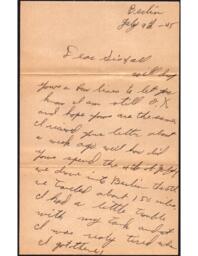 Berlin
July 9th - 45
Dear Sis & all
will drop
you a few lines to let you
know I am still O.K
and hope you are the same
I received your letter about
a week ago well how did
you spend the 4th of July
we drove into Berlin that
we traveled about 150 miles
I had a little trouble
with my tank and
I was realy tired when
I got there